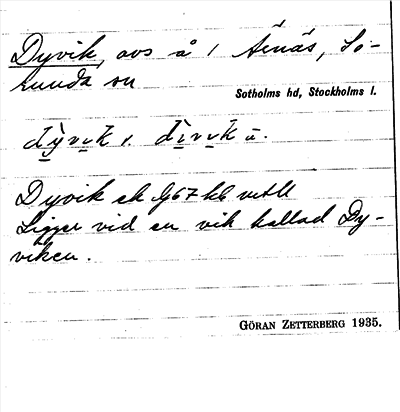 Dyvik, avs å / Ärnäs, So-
runda sn
Sotholms hd, Stockholms l.
dỳvik l. dìvik
Dyvik ek
Ligger vid en vik kallad Dy-
viken.
GÖRAN ZETTERBERG 1935.